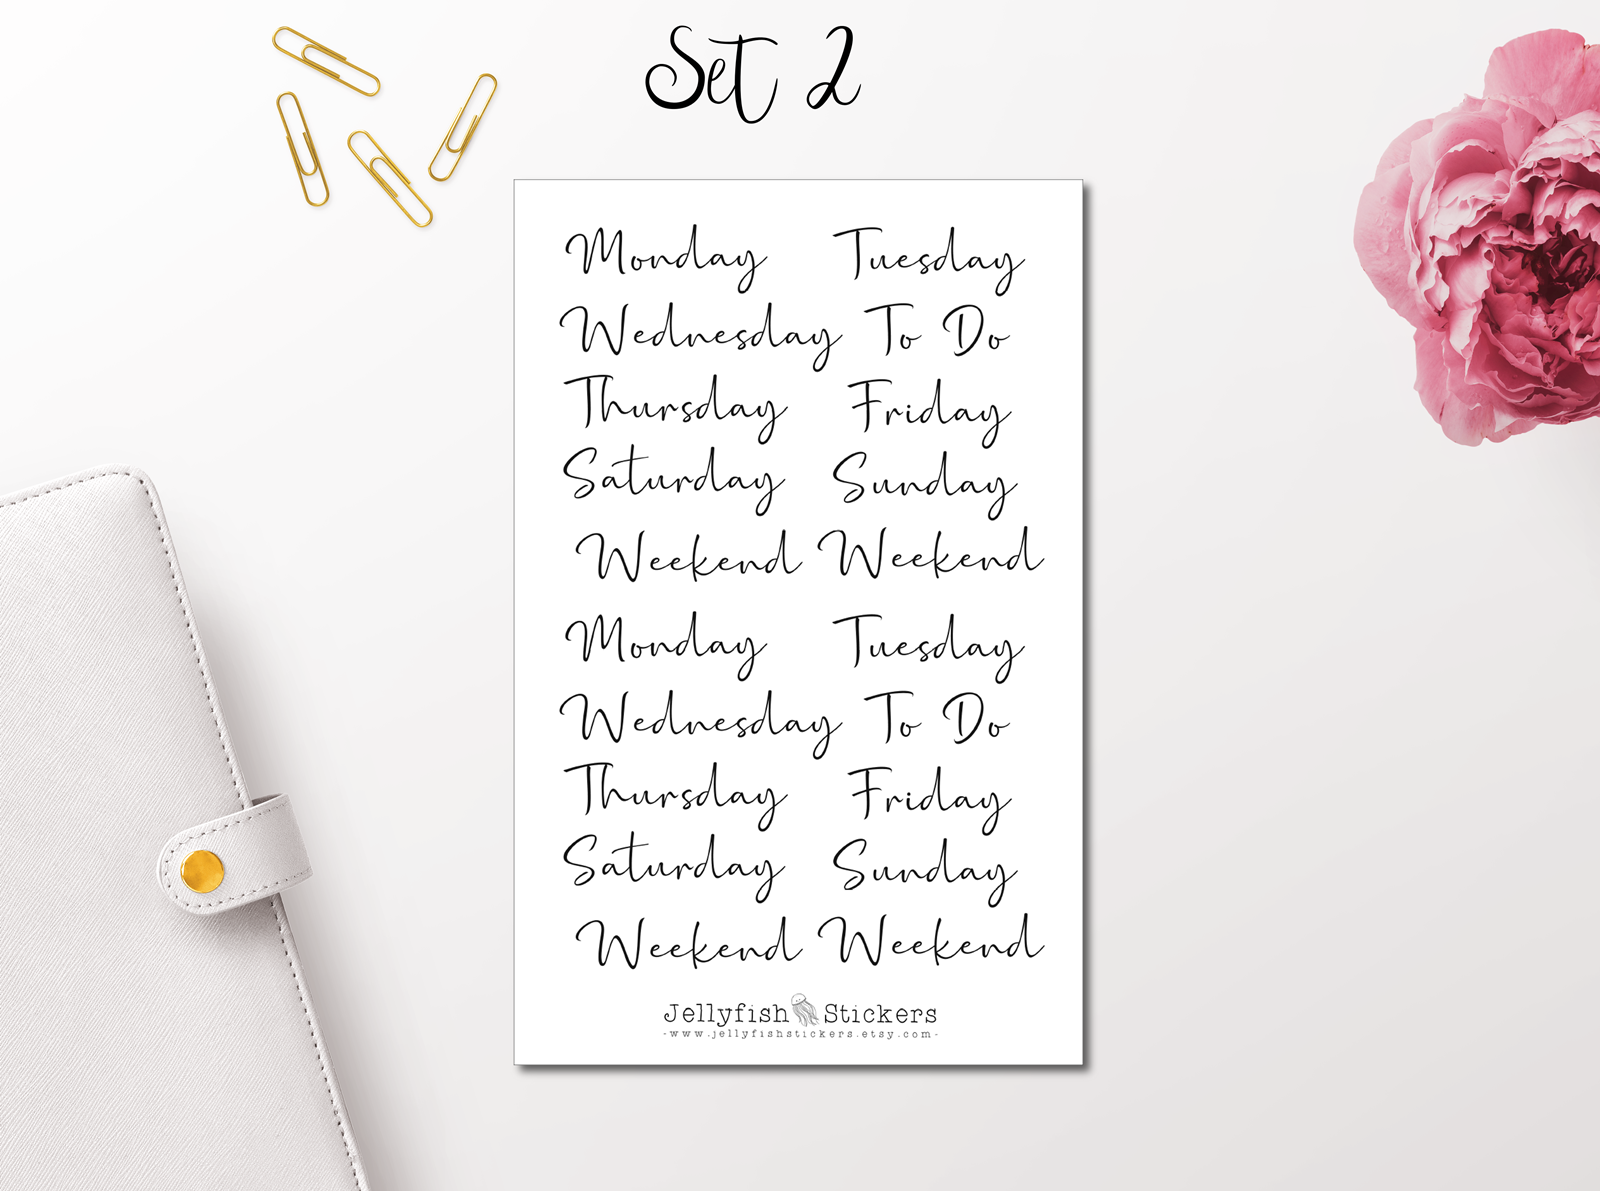 Set 2
Monday Tuesday
Wednesday To Do
Thursday Friday
Saturday Sunday
Weekend Weekend
Monday Tuesday
Wednesday To Do
Thursday Friday
Saturday Sunday
Weekend Weekend
Jellyfish Stickers
-www.jellyfishstickers.etsy.com-